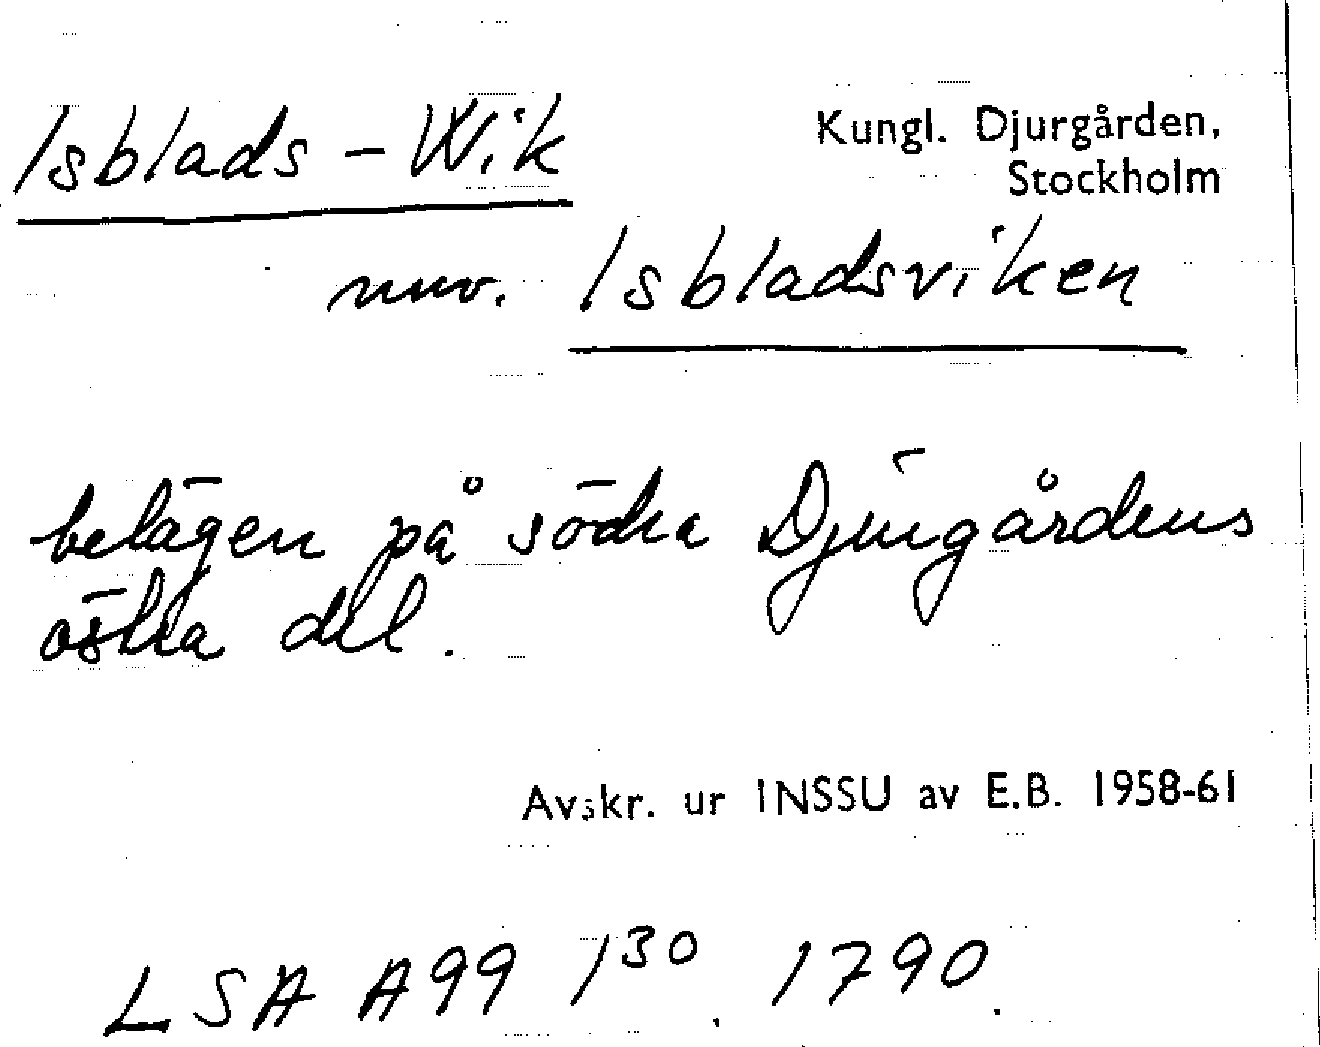 Isblads-Wik
Kungl. Djurgården,
Stockholm
nuv. Isbladsviken
belägen på södra Djurgårdens
östra del.
Avskr. ur INSSU av E.B. 1958-61
LSA A99 1³⁰. 1790.